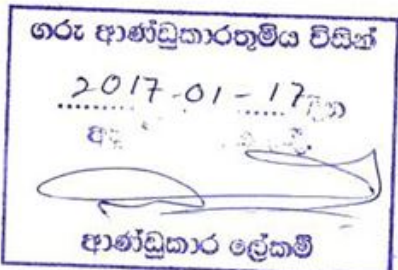 ගරු ආණ්ඩුකාරතුමිය විසින්
2017-01-17 දින
ආණ්ඩුකාර ලේකම්